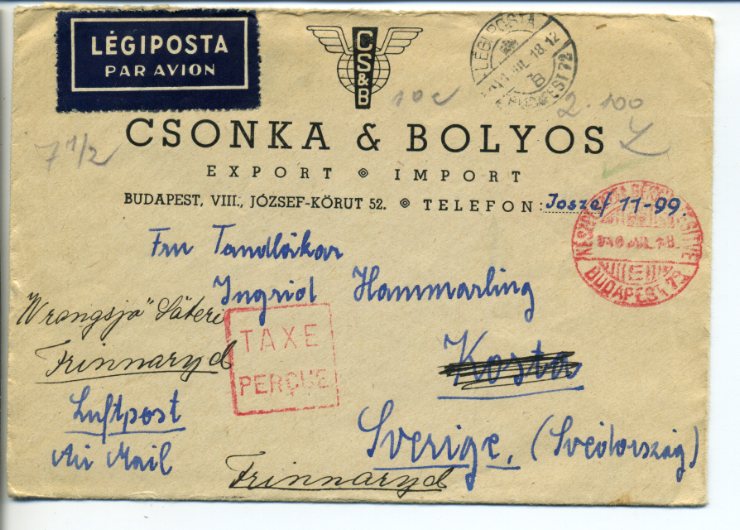 LÉGIPOSTA
PAR AVION
CS&B
LÉGIPOSTA
BUDAPEST 72
10c
2.100
7 1/2
CSONKA & BOLYOS
EXPORT IMPORT
BUDAPEST, VIII., JÓZSEF-KÖRUT 52. TELEFON: Joszef 11-99.
BUDAPEST 72
Fru Tandläkar
Ingrid Hammarling
"Wrangsjö" Säteri
Frinnaryd
TAXE
PERÇUE
Kosta
Luftpost
Sverige. (Svédország)
Air Mail
Frinnaryd